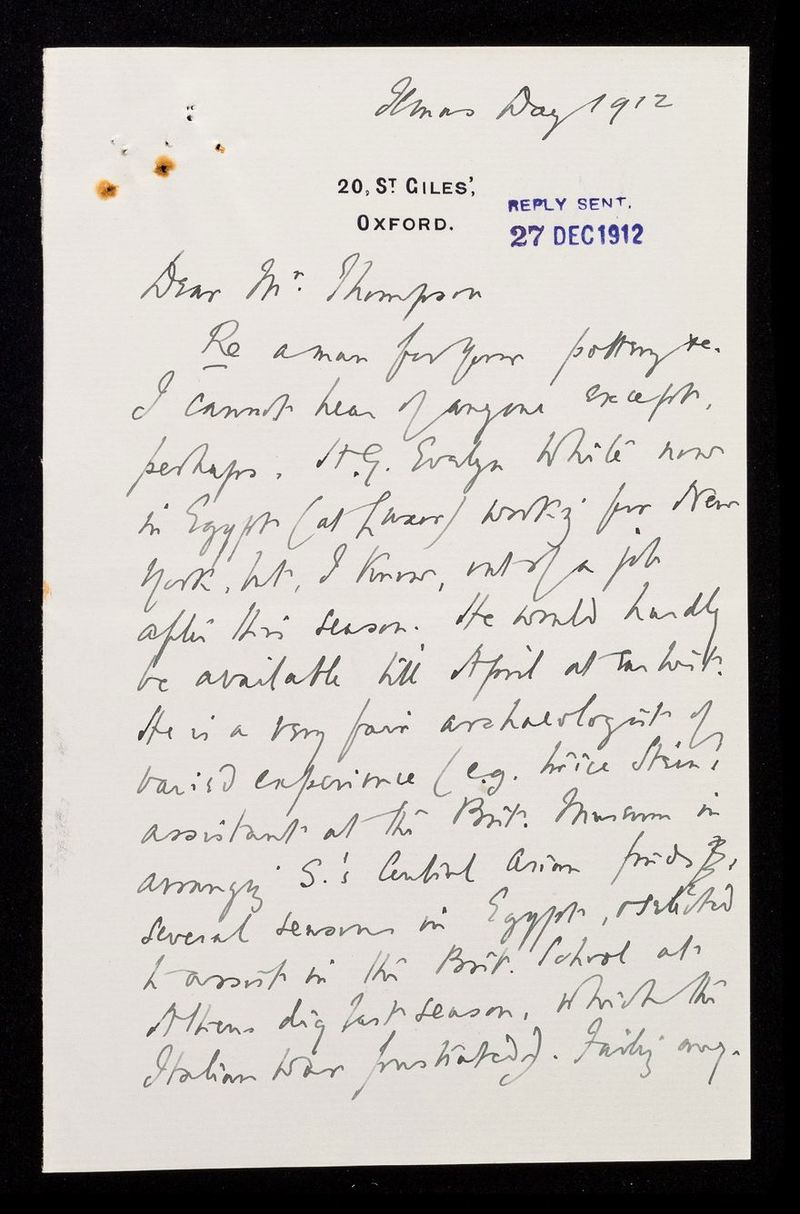 Xmas Day 1912
20, ST GILES',
OXFORD.
REPLY SENT.
27 DEC 1912
Dear Mr. Thompson
Re a man for your pottery &c.
I cannot hear of anyone except,
perhaps, H.G. Evelyn White now
in Egypt (at Luxor) workg for New
York, but, I know, out of a job
after this season. He would hardly
be available till April at earliest.
He is a very fair archaeologist of
varied experience (e.g. twice Stein's
assistant at the Brit. Museum in
arrangg S.'s Central Asian finds,
several seasons in Egypt, & selected
to assist in the Brit. School at
Athens dig last season, which the
Italian War frustrated). Failing any-